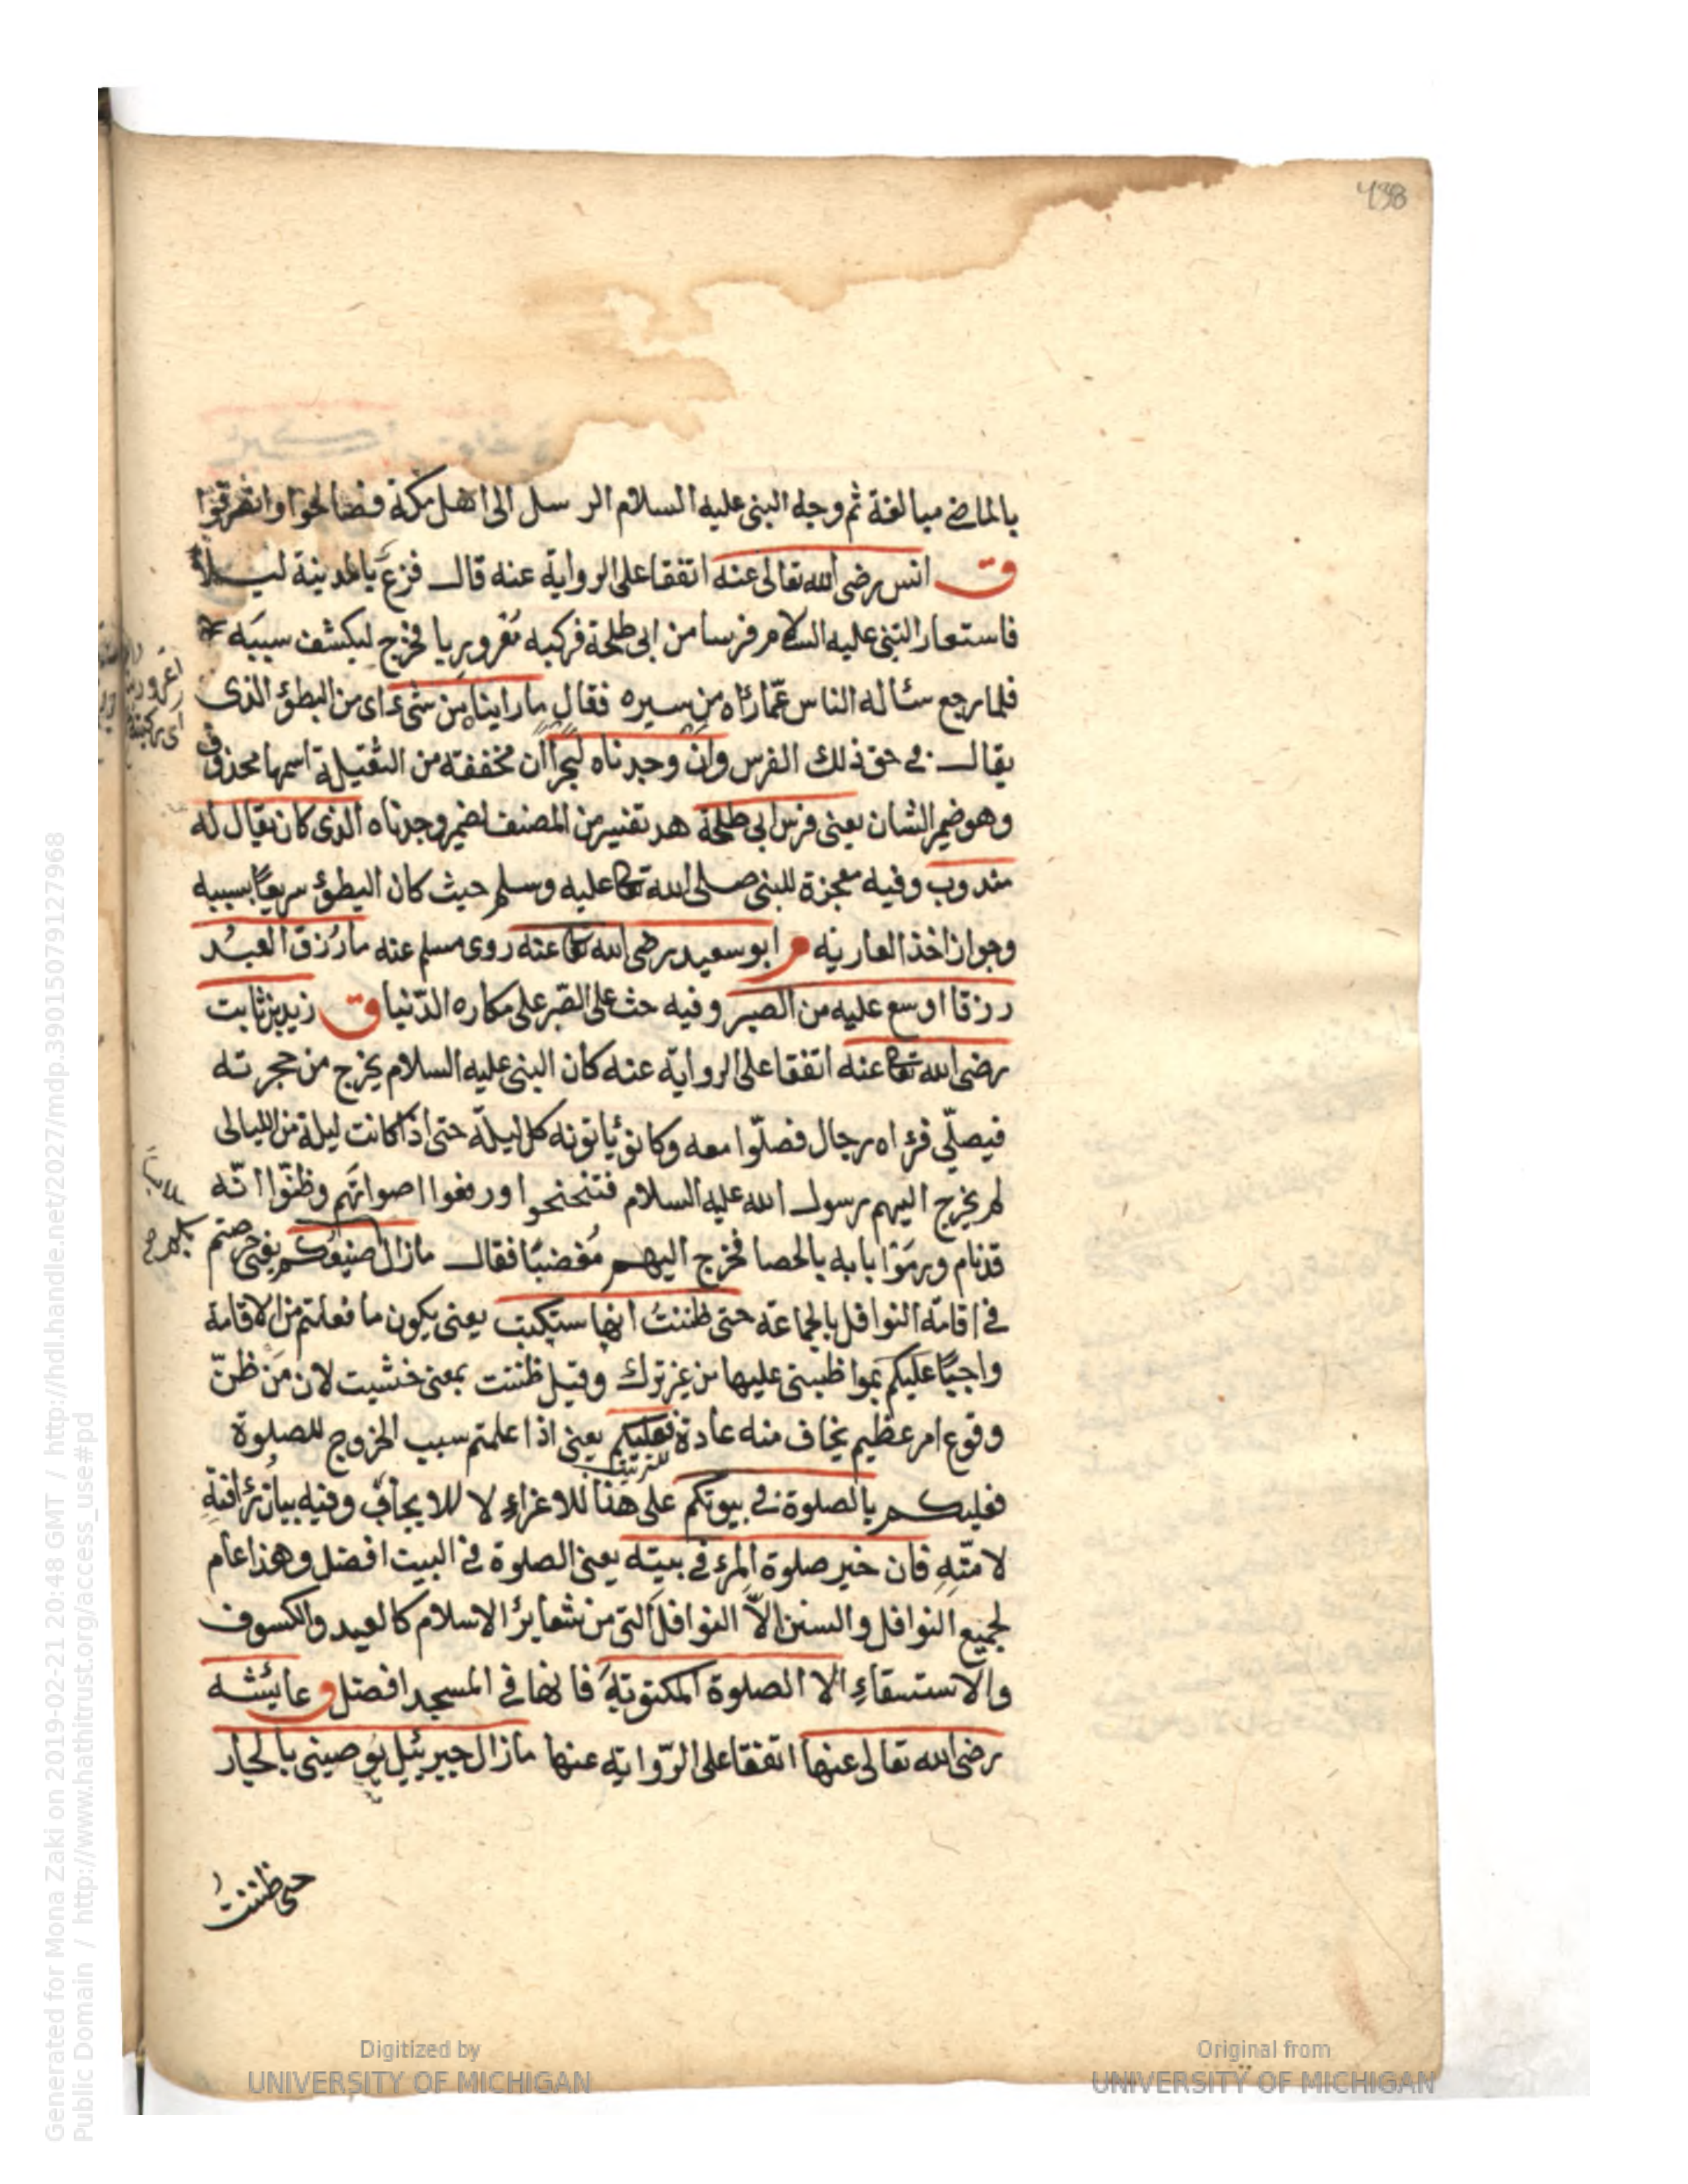 438
بالماضى مبالغة ثم وجه النبى عليه السلام الرسل الى اهل مكة فصالحوا وانصرفوا
ق انس رضى الله تعالى عنه اتفقا على الرواية عنه قال فزع بالمدينة ليلا
فاستعار النبى عليه السلام فرسا من ابى طلحة فركبه مُغروريا فخرج ليكشف سببَه
فلما رجع سئاله الناس عمّا رَاٰه من سيره فقال ما راينا من شئ اى من البطؤ الذى
يقال فى حق ذلك الفرس وان وجدناه لبحرا ان مخففة من الثقيلة اسمها محذوف
وهو ضمير الشان يعنى فرس ابى طلحة هد تفسير من المصنف لضمير وجدناه الذى كان يقال له
مندوب وفيه معجزة للنبى صلى الله تعا عليه وسلم حيث كان البطؤ سريعًا بسببه
وجواز اخذ العارية م ابو سعيد رضى الله تعا عنه روى مسلم عنه ما رُزق العبد
رزقا اوسع عليه من الصبر وفيه حث على الصّبر على مكاره الدّنيا ق زيد بن ثابت
رضى الله تعا عنه اتفقا على الرواية عنه كان النبى عليه السلام يخرج من حجرته
فيصلّى فرءاه رجال فصلّوا معه وكانؤ ياتونه كل ليلة حتى اذا كانت ليلة من الليالى
لم يخرج اليهم رسول الله عليه السلام فتنحنحوا ورفعوا اصواتهم وظنّوا انّه
قد نام ورمَوْا بابه بالحصا فخرج اليهم مُغضبًا فقال ما زال صنيعكم يعنى حرصتم
فى اقامة النوافل بالجماعة حتى ظننتُ انها ستكتب يعنى يكون ما فعلتم من الاقامة
واجبًا عليكم بمواظبتى عليها من غير ترك وقيل ظننت بمعنى خشيت لان مَن ظنّ
وقوع امر عظيم يخاف منه عادة فعليكم يعنى اذا علمتم سبب الخروج للصلوة
فعليكم بالصلوة فى بيوتكم على هنا للاغراءِ لا للايجاب وفيه بيان رُافتِهِ
لامّتِه فان خير صلوة المرء فى بيته يعنى الصلوة فى البيت افضل وهذا عام
لجميع النوافل والسنن الاّ النوافل التى من شعايرُ الاسلام كالعيد والكسوف
والاستسقاءِ الا الصلوة المكتوبة فانها فى المسجد افضل ق عايشه
رضى الله تعالى عنها اتفقا على الرّواية عنها ما زال جبريئيل يوصينى بالجار
حتى ظننتُ
Digitized by
UNIVERSITY OF MICHIGAN
Original from
UNIVERSITY OF MICHIGAN
Generated for Mona Zaki on 2019-02-21 20:48 GMT / http://hdl.handle.net/2027/mdp.39015079127968
Public Domain / http://www.hathitrust.org/access_use#pd